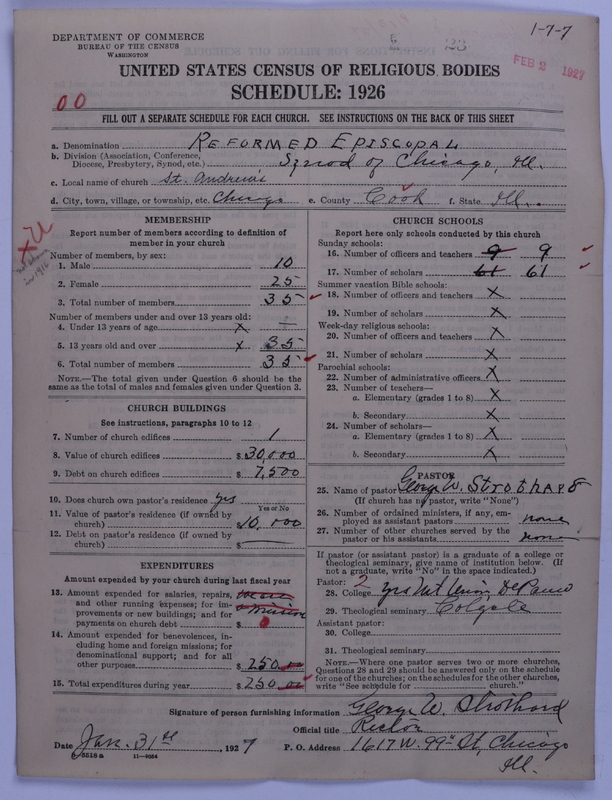 1-7-7
DEPARTMENT OF COMMERCE
BUREAU OF THE CENSUS
WASHINGTON
FEB 2 1927
UNITED STATES CENSUS OF RELIGIOUS BODIES
SCHEDULE: 1926
00
FILL OUT A SEPARATE SCHEDULE FOR EACH CHURCH. SEE INSTRUCTIONS ON THE BACK OF THIS SHEET
a. Denomination REFORMED EPISCOPAL
b. Division (Association, Conference, Diocese, Presbytery, Synod, etc.) Synod of Chicago, Ill.
c. Local name of church St. Andrew's
d. City, town, village, or township, etc. Chicago e. County Cook f. State Ill.
MEMBERSHIP
Report number of members according to definition of
member in your church
Number of members, by sex:
1. Male 10
2. Female 25
3. Total number of members 35
Number of members under and over 13 years old:
4. Under 13 years of age x —
5. 13 years old and over x 35
6. Total number of members 35
NOTE.—The total given under Question 6 should be the
same as the total of males and females given under Question 3.
CHURCH BUILDINGS
See instructions, paragraphs 10 to 12
7. Number of church edifices 1
8. Value of church edifices $ 30,000
9. Debt on church edifices $ 7,500
10. Does church own pastor's residence yes
Yes or No
11. Value of pastor's residence (if owned by
church) $ 10,000
12. Debt on pastor's residence (if owned by
church) $ —
EXPENDITURES
Amount expended by your church during last fiscal year
13. Amount expended for salaries, repairs,
and other running expenses; for im-
provements or new buildings; and for
payments on church debt $
14. Amount expended for benevolences, in-
cluding home and foreign missions; for
denominational support; and for all
other purposes $ 250.00
15. Total expenditures during year $ 250.00
CHURCH SCHOOLS
Report here only schools conducted by this church
Sunday schools:
16. Number of officers and teachers 9 9
17. Number of scholars 61 61
Summer vacation Bible schools:
18. Number of officers and teachers X
19. Number of scholars X
Week-day religious schools:
20. Number of officers and teachers X
21. Number of scholars X
Parochial schools:
22. Number of administrative officers X
23. Number of teachers—
a. Elementary (grades 1 to 8) X
b. Secondary X
24. Number of scholars—
a. Elementary (grades 1 to 8) X
b. Secondary X
PASTOR
25. Name of pastor George W. Strothard
(If church has no pastor, write "None")
26. Number of ordained ministers, if any, em-
ployed as assistant pastors none
27. Number of other churches served by the
pastor or his assistants none
If pastor (or assistant pastor) is a graduate of a college or
theological seminary, give name of institution below. (If
not a graduate, write "No" in the space indicated.)
Pastor: 2
28. College yrs Mt Union DePauw
29. Theological seminary Colgate
Assistant pastor:
30. College
31. Theological seminary
NOTE.—Where one pastor serves two or more churches,
Questions 28 and 29 should be answered only on the schedule
for one of the churches; on the schedules for the other churches,
write "See schedule for church."
Signature of person furnishing information George W. Strothard
Official title Rector
Date Jan. 31st, 1927 P. O. Address 1617 W. 99th St, Chicago
Ill.
8-5518a 11-9054